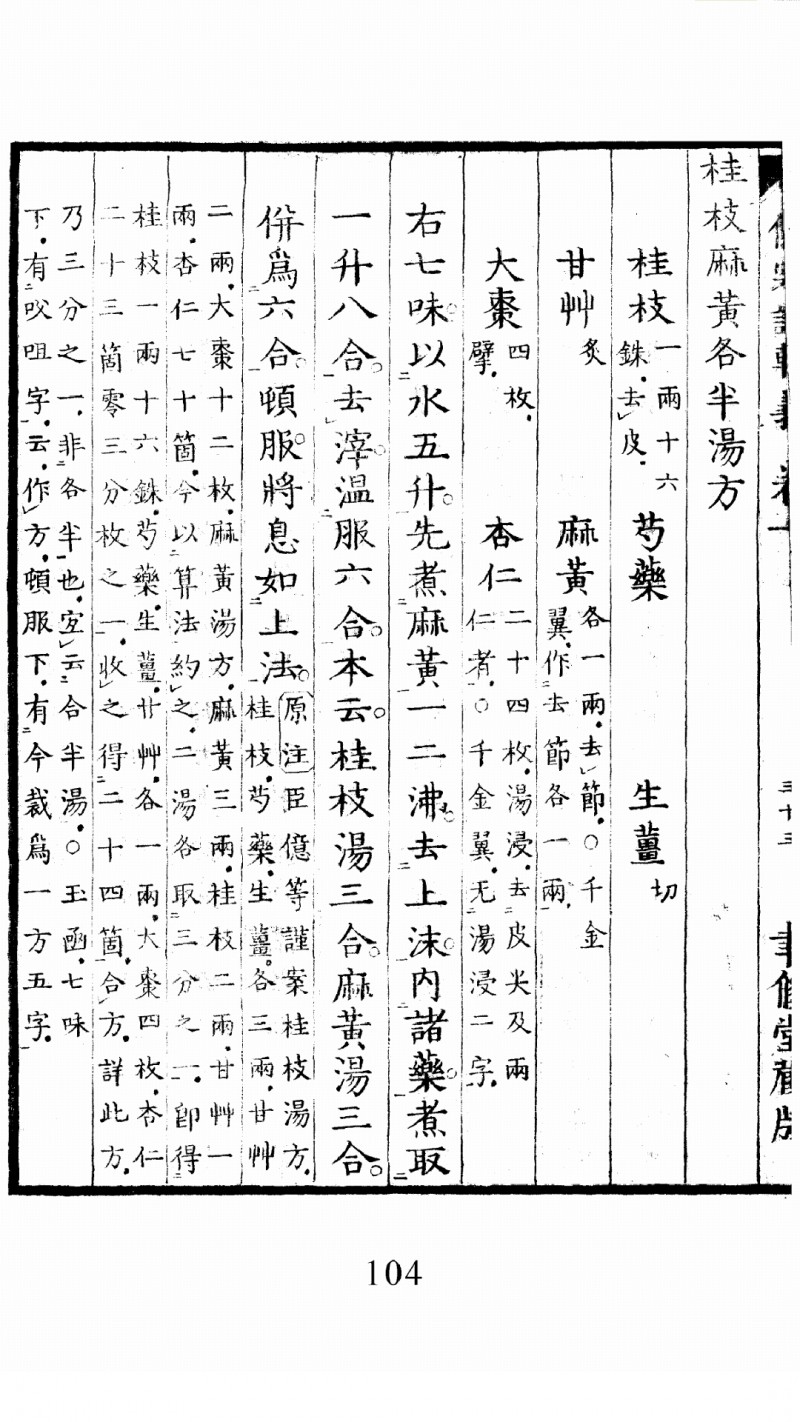 傷寒論輯義 卷一
三十三
聿修堂藏版
桂枝麻黃各半湯方
桂枝一兩十六
銖去皮 芍藥 生薑切
甘艸炙 麻黃各一兩去節○千金
翼作去節各一兩
大棗四枚
擘 杏仁二十四枚湯浸去皮尖及兩
仁者○千金翼无湯浸二字
右七味以水五升先煮麻黃一二沸去上沫內諸藥煮取
一升八合去滓溫服六合本云桂枝湯三合麻黃湯三合
併爲六合頓服將息如上法原注臣億等謹案桂枝湯方
桂枝芍藥生薑各三兩甘艸
二兩大棗十二枚麻黃湯方麻黃三兩桂枝二兩甘艸一
兩杏仁七十箇今以算法約之二湯各取三分之一卽得
桂枝一兩十六銖芍藥生薑甘艸各一兩大棗四枚杏仁
二十三箇零三分枚之一收之得二十四箇合方詳此方
乃三分之一非各半也宜云合半湯○玉函七味
下有㕮咀字云作方頓服下有今裁爲一方五字
104